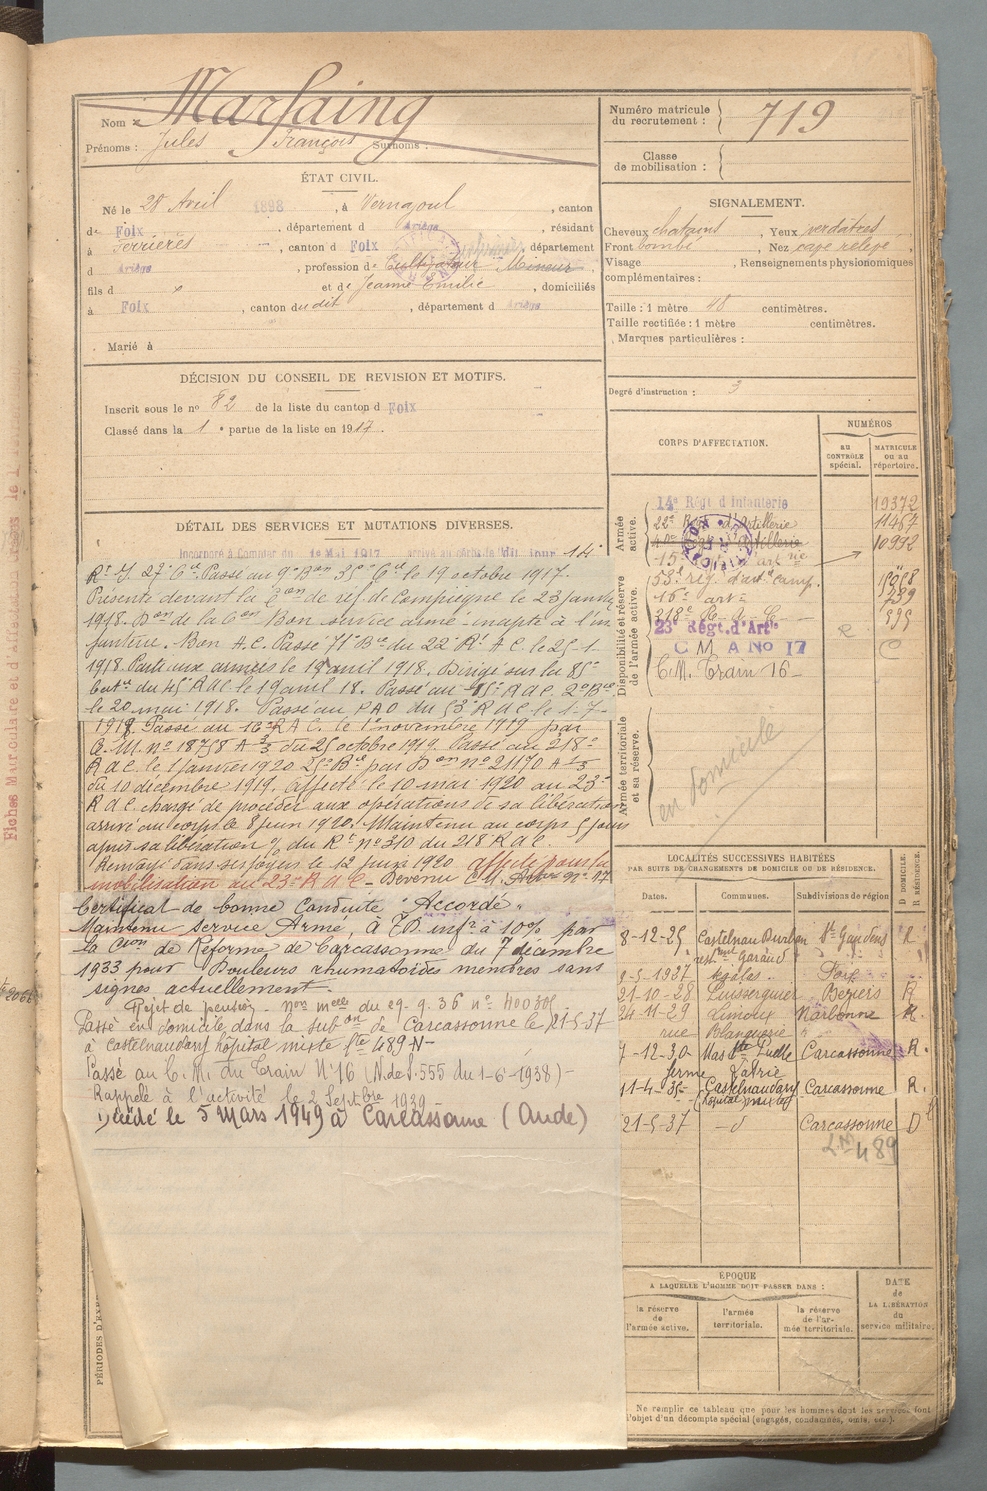 Nom : Marfaing
Prénoms : Jules François Surnoms :
ÉTAT CIVIL.
Né le 28 Avril 1898, à Vernajoul, canton
de Foix, département d Ariège, résidant
à Ferrières, canton d Foix, département
d Ariège, profession de Cultivateur Mineur
fils d x et de Jeanne Emilie, domiciliés
à Foix, canton du dit, département d Ariège
Marié à
DÉCISION DU CONSEIL DE REVISION ET MOTIFS.
Inscrit sous le no 82 de la liste du canton d Foix
Classé dans la 1e partie de la liste en 1917.
DÉTAIL DES SERVICES ET MUTATIONS DIVERSES.
Incorporé à compter du 1er Mai 1917 arrivé au corps le dit jour 14e
Rt I. 27e Cie. Passé au 9e Bon 35e Cie le 19 octobre 1917.
Présenté devant la Con de réf. de Compiègne le 23 janvier
1918. Don de la Con Bon service armé inapte à l'in
fanterie. Bon A.C. Passé 71e Bie du 22e Rt A C. le 25-1-
1918. Parti aux armées le 19 avril 1918. Dirigé sur la 85e
Batie du 45e R A C le 19 avril 18. Passé au R A C. 2e Bie
le 20 mai 1918. Passé au P A D du 53e R A C le 1-7-
1918. Passé au 16e R A C. le 1er novembre 1919 par
C. M. no 18758 A 3/3 du 25 octobre 1919. Passé au 218e
R A C. le 1 janvier 1920 25e Bie par Don no 21170 A
du 10 décembre 1919. Affecté le 10 mai 1920 au 23e
R A C. chargé de procéder aux opérations de sa libération
arrivé au corps le 8 juin 1920. Maintenu au corps 5 jours
après sa libération % du Rt no 310 du 218 R A C.
Renvoyé dans ses foyers le 12 juin 1920 affecté pour la
mobilisation au 23e R A C – Devenu C.M. Artie no 17
Certificat de bonne Conduite "Accordé"
Maintenu service Armé, à I.P. infre à 10% par
la Cion de Réforme de Carcassonne du 7 décembre
1933 pour Douleurs rhumatoïdes membres sans
signes actuellement.
Rejet de pension. Don mlle du 29.9.36 no 400305
Passé en domicile dans la subon de Carcassonne le 21-5-37
à Castelnaudary hôpital mixte Lte 489-N-
Passé au C. M. du Train N°16 (N.de S.555 du 1-6-1938)-
Rappelé à l'activité le 2 Septbre 1939 –
Décédé le 5 Mars 1949 à Carcassonne (Aude)
PÉRIODES D'EX
Numéro matricule du recrutement : 719
Classe de mobilisation :
SIGNALEMENT.
Cheveux chatains, Yeux verdâtres
Front bombé, Nez cave relevé,
Visage , Renseignements physionomiques
complémentaires :
Taille : 1 mètre 48 centimètres.
Taille rectifiée : 1 mètre centimètres.
Marques particulières :
Degré d'instruction : 3
CORPS D'AFFECTATION.
NUMÉROS
AU CONTRÔLE spécial.
MATRICULE ou au répertoire.
Armée active.
14e Régt d'Infanterie 19372
22e Rgt d'Artillerie 11467
d'Artillerie 10992
Disponibilité et réserve de l'armée active.
53e rég. d'art. camp.
16e artie 289
218e R. A. C. 535
23e Régt. d'Artie
C M A No 17
C.M. Train 16 –
R
C
Armée territoriale et sa réserve.
en domicile
LOCALITÉS SUCCESSIVES HABITÉES
PAR SUITE DE CHANGEMENTS DE DOMICILE OU DE RÉSIDENCE.
Dates. Communes. Subdivisions de région D DOMICILE. R RÉSIDENCE.
8-12-25 Castelnau Durban St Gaudens R
-5-1937 Foix
21-10-28 Puisserguier Béziers R
24-11-29 Limoux Narbonne R.
rue Blanquerie "
7-12-30 Mas Stes Puelle Carcassonne R.
ferme
11-4-35- Castelnaudary Carcassonne R.
(hôpital mixte)
21-5-37 – d Carcassonne D
L.M 489
ÉPOQUE
A LAQUELLE L'HOMME DOIT PASSER DANS :
la réserve de l'armée active.
l'armée territoriale.
la réserve de l'armée territoriale.
DATE de LA LIBÉRATION du service militaire.
Ne remplir ce tableau que pour les hommes dont les services font
l'objet d'un décompte spécial (engagés, condamnés, omis, etc.).